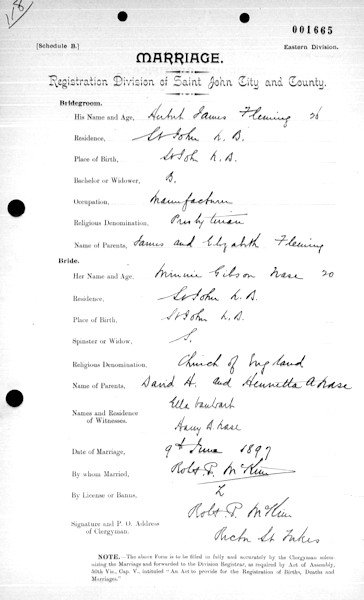 18
001665
[Schedule B.]
Eastern Division.
MARRIAGE.
Registration Division of Saint John City and County.
Bridegroom.
His Name and Age, Herbert James Fleming 26
Residence, St John N.B.
Place of Birth, St John N.B.
Bachelor or Widower, B.
Occupation, Manufacturer
Religious Denomination, Presbyterian
Name of Parents, James and Elizabeth Fleming
Bride.
Her Name and Age, Minnie Gibson Nase 20
Residence, St John N.B.
Place of Birth, St John N.B.
Spinster or Widow, S.
Religious Denomination, Church of England
Name of Parents, David H. and Henrietta A Nase
Names and Residence of Witnesses. Ella Vanwart
Harry A. Nase
Date of Marriage, 9th June 1897
By whom Married, Robt P. McKim
By License or Banns, L
Robt P. McKim
Signature and P. O. Address of Clergyman. Rector St Lukes
NOTE.—The above Form is to be filled in fully and accurately by the Clergyman solemnizing the Marriage and forwarded to the Division Registrar, as required by Act of Assembly,
50th Vic., Cap. V., intituled "An Act to provide for the Registration of Births, Deaths and
Marriages."